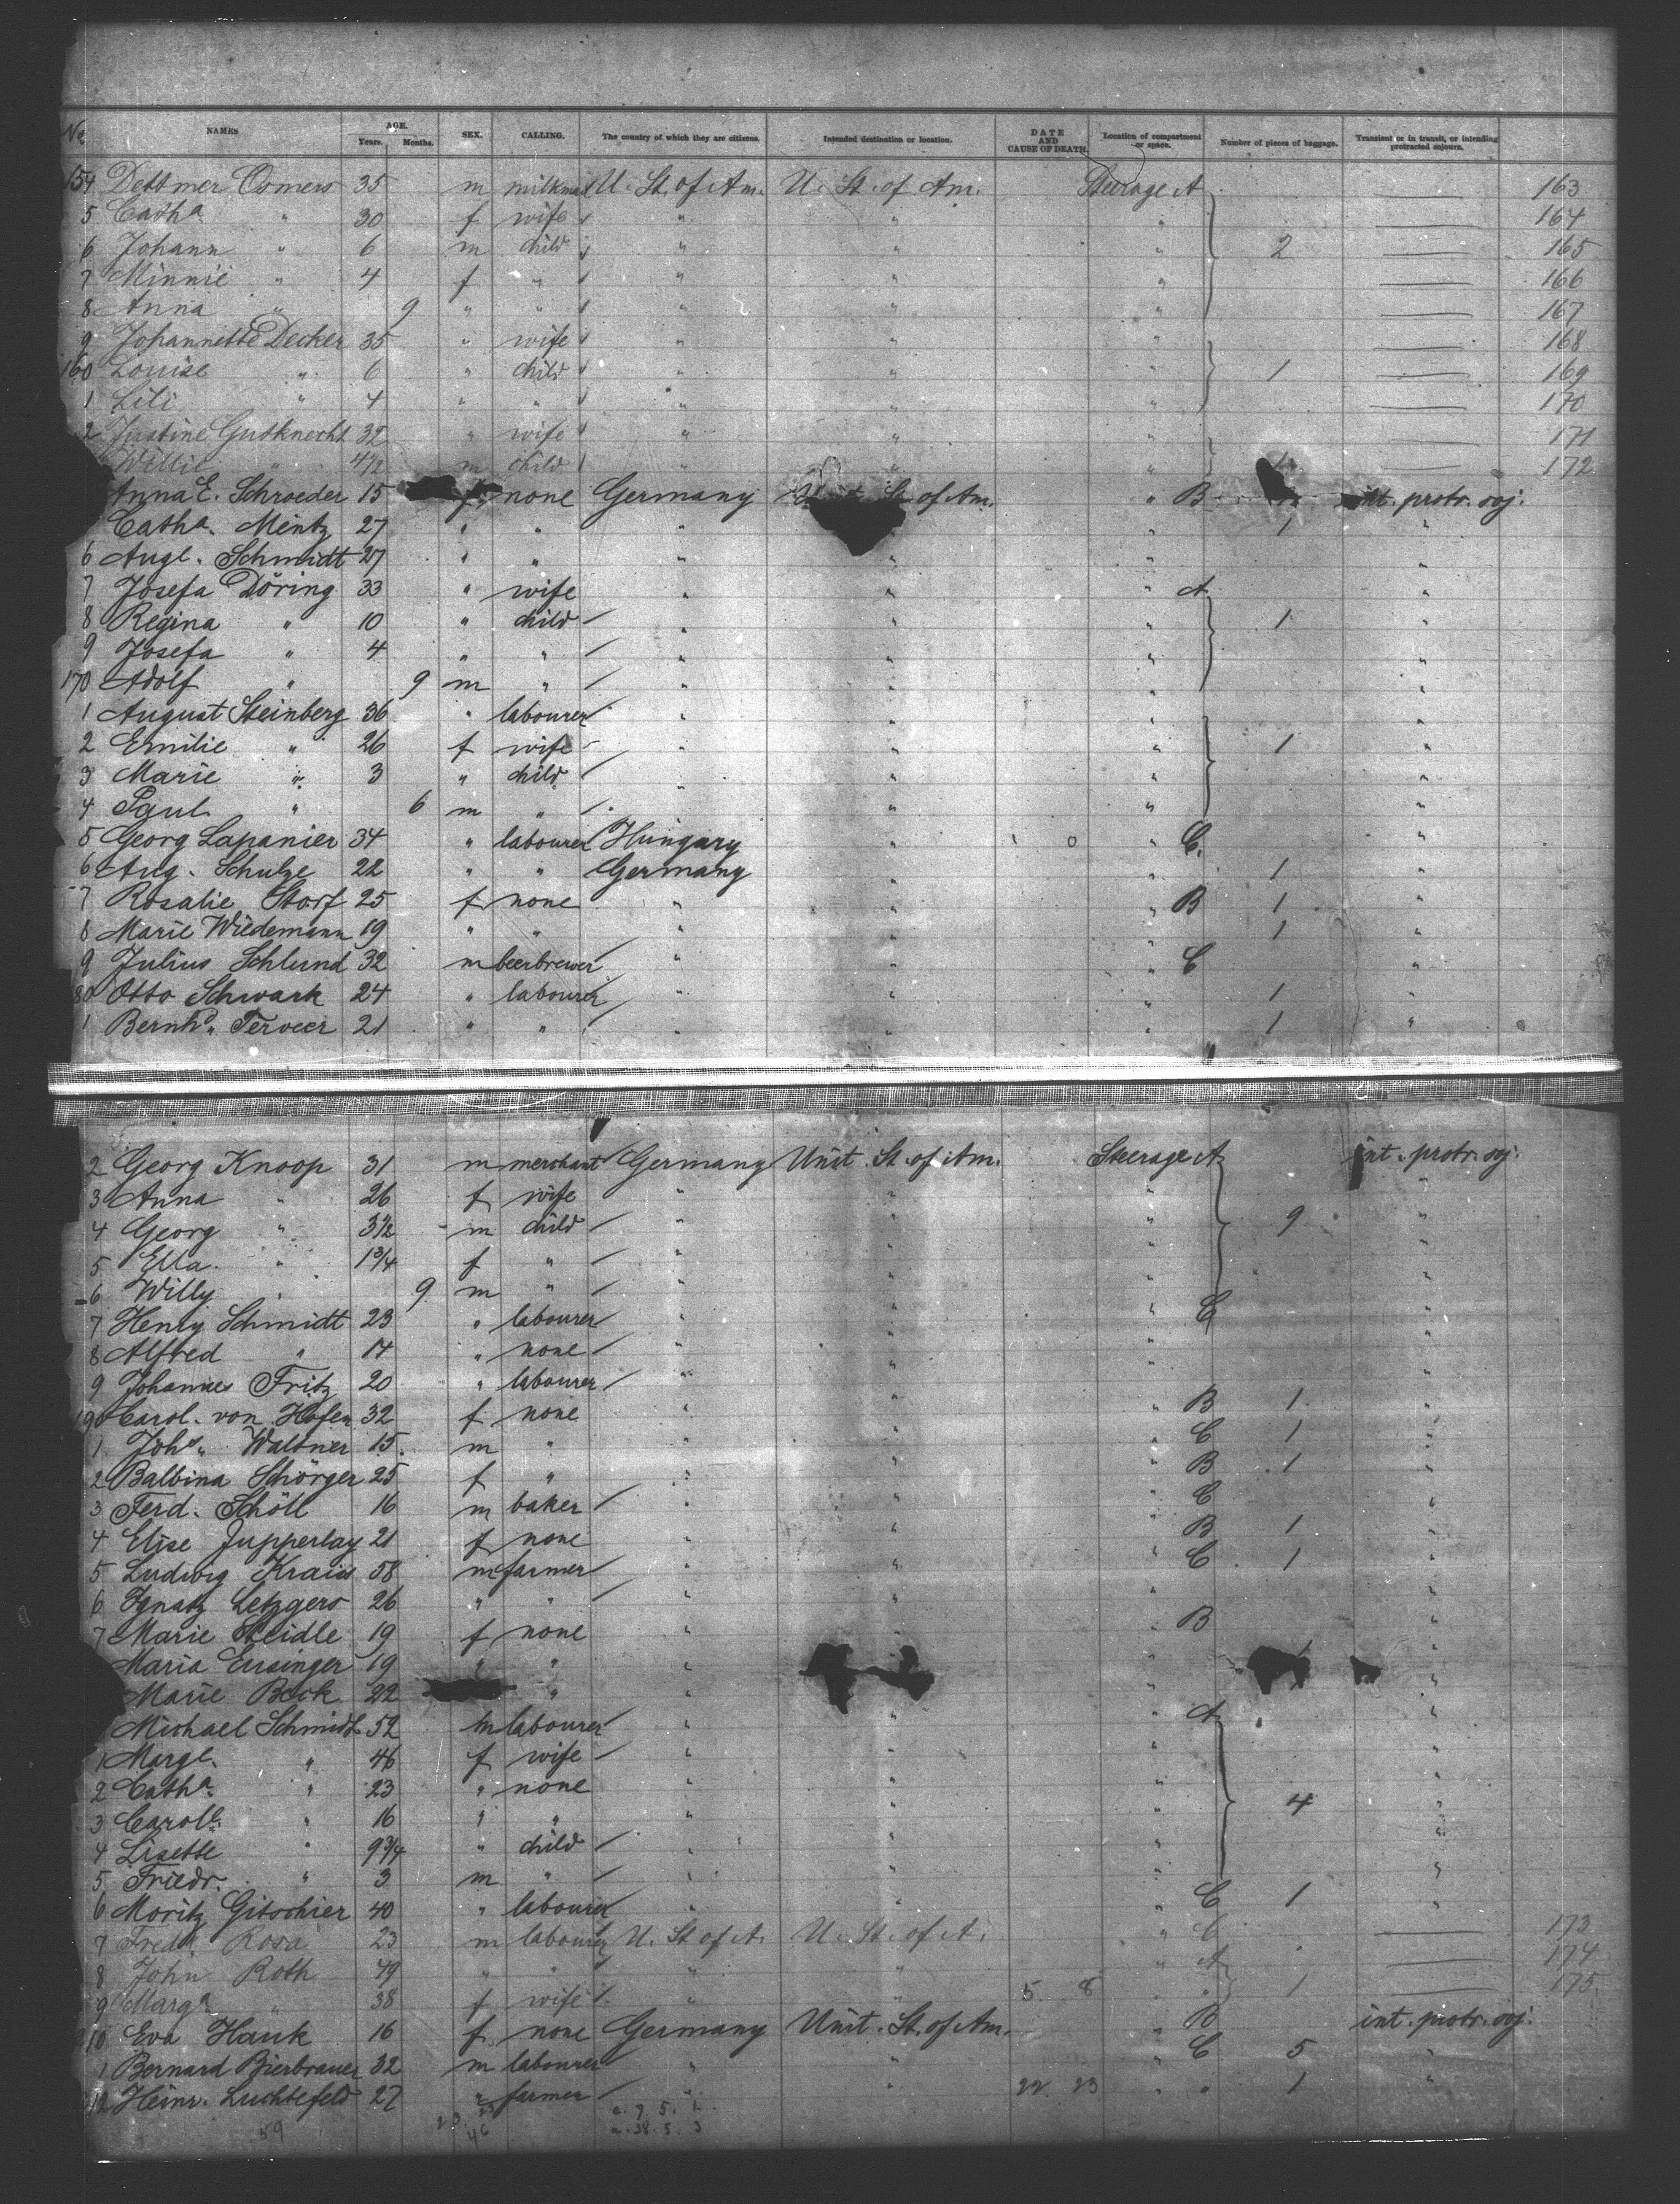 No NAMES AGE. Years. Months. SEX. CALLING. The country of which they are citizens. Intended destination or location. DATE AND CAUSE OF DEATH. Location of compartment or space. Number of pieces of baggage. Transient or in transit, or intending protracted sojourn.
154 Dettmer Osmers 35 m milkman U. St. of Am. U. St. of Am. Steerage A 163
5 Cath.a " 30 f wife " " " 164
6 Johann " 6 m child " " " 2 165
7 Minnie " 4 f " " " " 166
8 Anna " 9 " " " " " 167
9 Johannette Decker 35 " wife " " " 168
160 Louise " 6 " child " " " 1 169
1 Lili " 4 " " " " " 170
2 Justine Gutknecht 32 " wife " " " 171
Willie " 4 1/2 m child " " " 1 172
Anna E. Schroeder 15 f none Germany St. of Am. " B int. protr. soj.
Cath.a Mentz 27 " " " " " 1 "
6 Aug.e Schmidt 27 " " " " " "
7 Josefa Döring 33 " wife " " " A "
8 Regina " 10 " child " " " 1 "
9 Josefa " 4 " " " " " "
170 Adolf " 9 m " " " " "
1 August Steinberg 36 " labourer " " " "
2 Emilie " 26 f wife " " " 1 "
3 Marie " 3 " child " " " "
4 Paul " 6 m " " " " "
5 Georg Lapanier 34 " labourer Hungary " " C. "
6 Aug. Schulze 22 " " Germany " " 1 "
7 Rosalie Storf 25 f none " " " B 1 "
8 Marie Wiedemann 19 " " " " " 1 "
9 Julius Schlund 32 m beerbrewer " " " C "
80 Otto Schwark 24 " labourer " " " 1 "
1 Bernh.d Terveer 21 " " " " " 1 "
2 Georg Knoop 31 m merchant Germany Unit. St. of Am. Steerage A int. protr. soj.
3 Anna " 26 f wife " " " "
4 Georg " 3 1/2 m child " " " 9 "
5 Ella " 1 3/4 f " " " " "
6 Willy " 9 m " " " " "
7 Henry Schmidt 23 " labourer " " " C "
8 Alfred " 14 " none " " " "
9 Johannes Fritz 20 " labourer " " "
190 Carol. von Hofen 32 f none " " " B 1 "
1 Joh.s Waltner 15 m " " " " C 1 "
2 Balbina Schörger 25 f " " " " B 1 "
3 Ferd. Schöll 16 m baker " " " C "
4 Elise Jupperlay 21 f none " " " B 1 "
5 Ludwig Kraiss 58 m farmer " " " C 1 "
6 Ignatz Letzgers 26 " " " " " "
7 Marie Steidle 19 f none " " " B "
Maria Ensinger 19 " " " "
Marie Beck 22 " " " "
Michael Schmidt 52 m labourer " " " A "
1 Marg.e " 46 f wife " " " "
2 Cath.a " 23 " none " " " 4 "
3 Carol.e " 16 " " " " " "
4 Lisette " 9 3/4 " child " " " "
5 Friedr. " 3 m " " " " "
6 Moritz Gitschier 40 " labourer " " " C 1 "
7 Fredk. Rosa 23 m labourer U. St. of A. U. St. of A. " C 173
8 John Roth 49 " " " " " A 174
9 Marg.a " 38 f wife " " 5 8 " 1 175
210 Eva Hauk 16 f none Germany Unit. St. of Am. " B int. protr. soj.
1 Bernard Bierbrauer 32 m labourer " " " C 5 "
12 Heinr. Luchtefeld 27 " farmer " " 22 23 " " 1 "
59